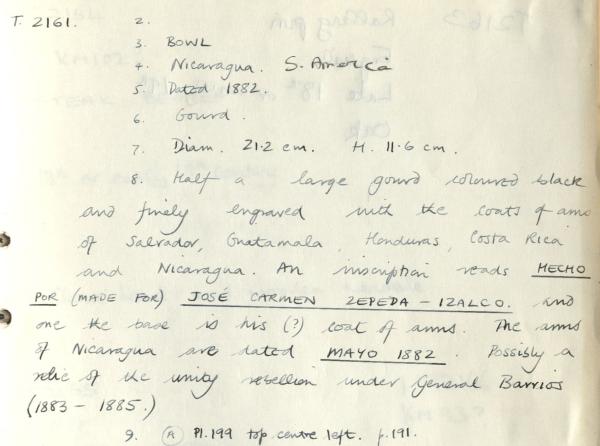 T. 2161. 2.
3. BOWL
4. Nicaragua. S. America
5. Dated 1882.
6. Gourd.
7. Diam. 21.2 cm. H. 11.6 cm.
8. Half a large gourd coloured black
and finely engraved with the coats of arms
of Salvador, Guatamala, Honduras, Costa Rica
and Nicaragua. An inscription reads HECHO
POR (MADE FOR) JOSÉ CARMEN ZEPEDA - IZALCO. and
one the base is his (?) coat of arms. The arms
of Nicaragua are dated MAYO 1882. Possibly a
relic of the unity rebellion under General Barrios
(1883 - 1885.)
9. (A) Pl. 199 top centre left. p. 191.